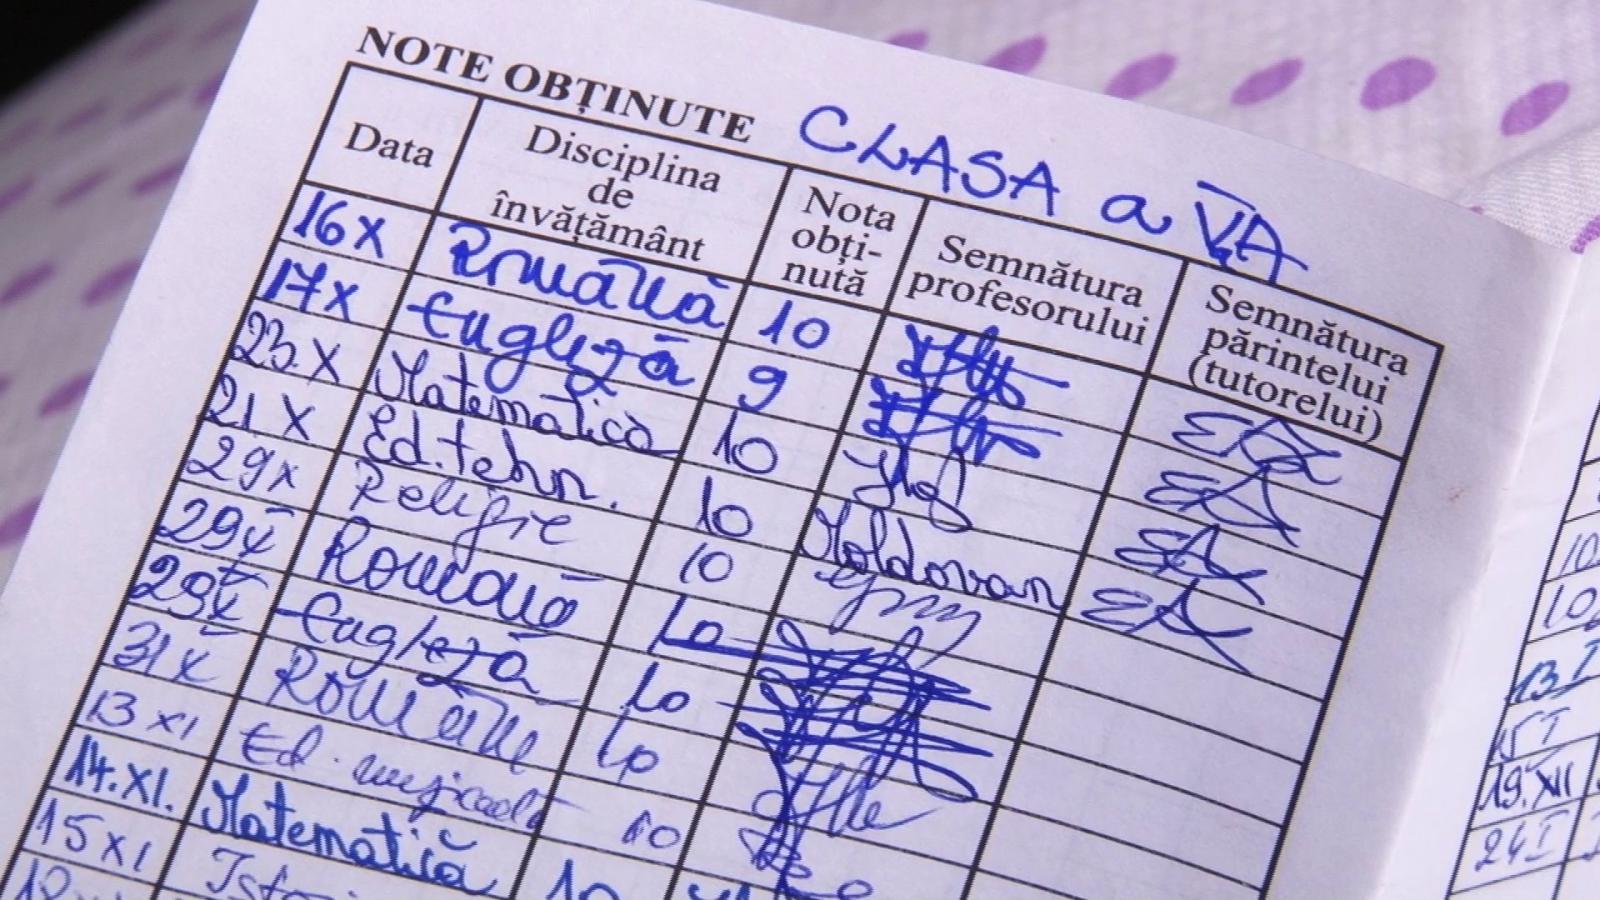 NOTE OBȚINUTE CLASA a VA
Data Disciplina de învățământ Nota obți-nută Semnătura profesorului Semnătura părintelui (tutorelui)
16 X Română 10
17 X Engleză 9
23.X Matematică 10
21 X Ed.tehn. 10 Moldovan
29 X Religie 10
29 X Română 10
29 X Engleză 10
31 X Română 10
13 XI Ed. muzicală 10
14.XI. Matematică 10
15 XI
10
13 I
15 I
19.XII
24 I